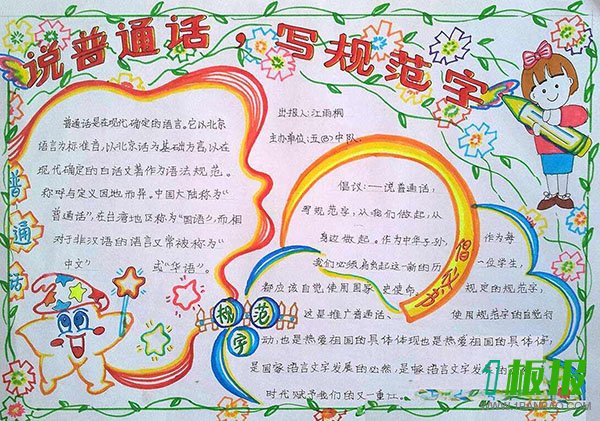 说普通话，写规范字
出报人：江雨桐
主办单位：五(四)中队
普通话是在现代确定的语言。它以北京
语言为标准音，以北京话为基础方言，以在
现代确定的白话文著作为语法规范。
称呼与定义因地而异。中国大陆称为“
普通话”，在台湾地区称为“国语”，而相
对于非汉语的语言又常被称为“
中文” 或“华语”。
普通话
规范字
倡议
倡议：——说普通话，
写规范字，从我们做起，从
身边做起。作为中华子孙， 作为每
我们必须肩负起这一新的历 一位学生，
都应该自觉使用国家 史使命。 规定的规范字，
这是推广普通话、 使用规范字的自觉行
动，也是热爱祖国的具体体现也是热爱祖国的具体体
是国家语言文字发展的必然，是 语言文字发
时代赋予我们的又一重
1板报
WWW.1BANBAO.COM